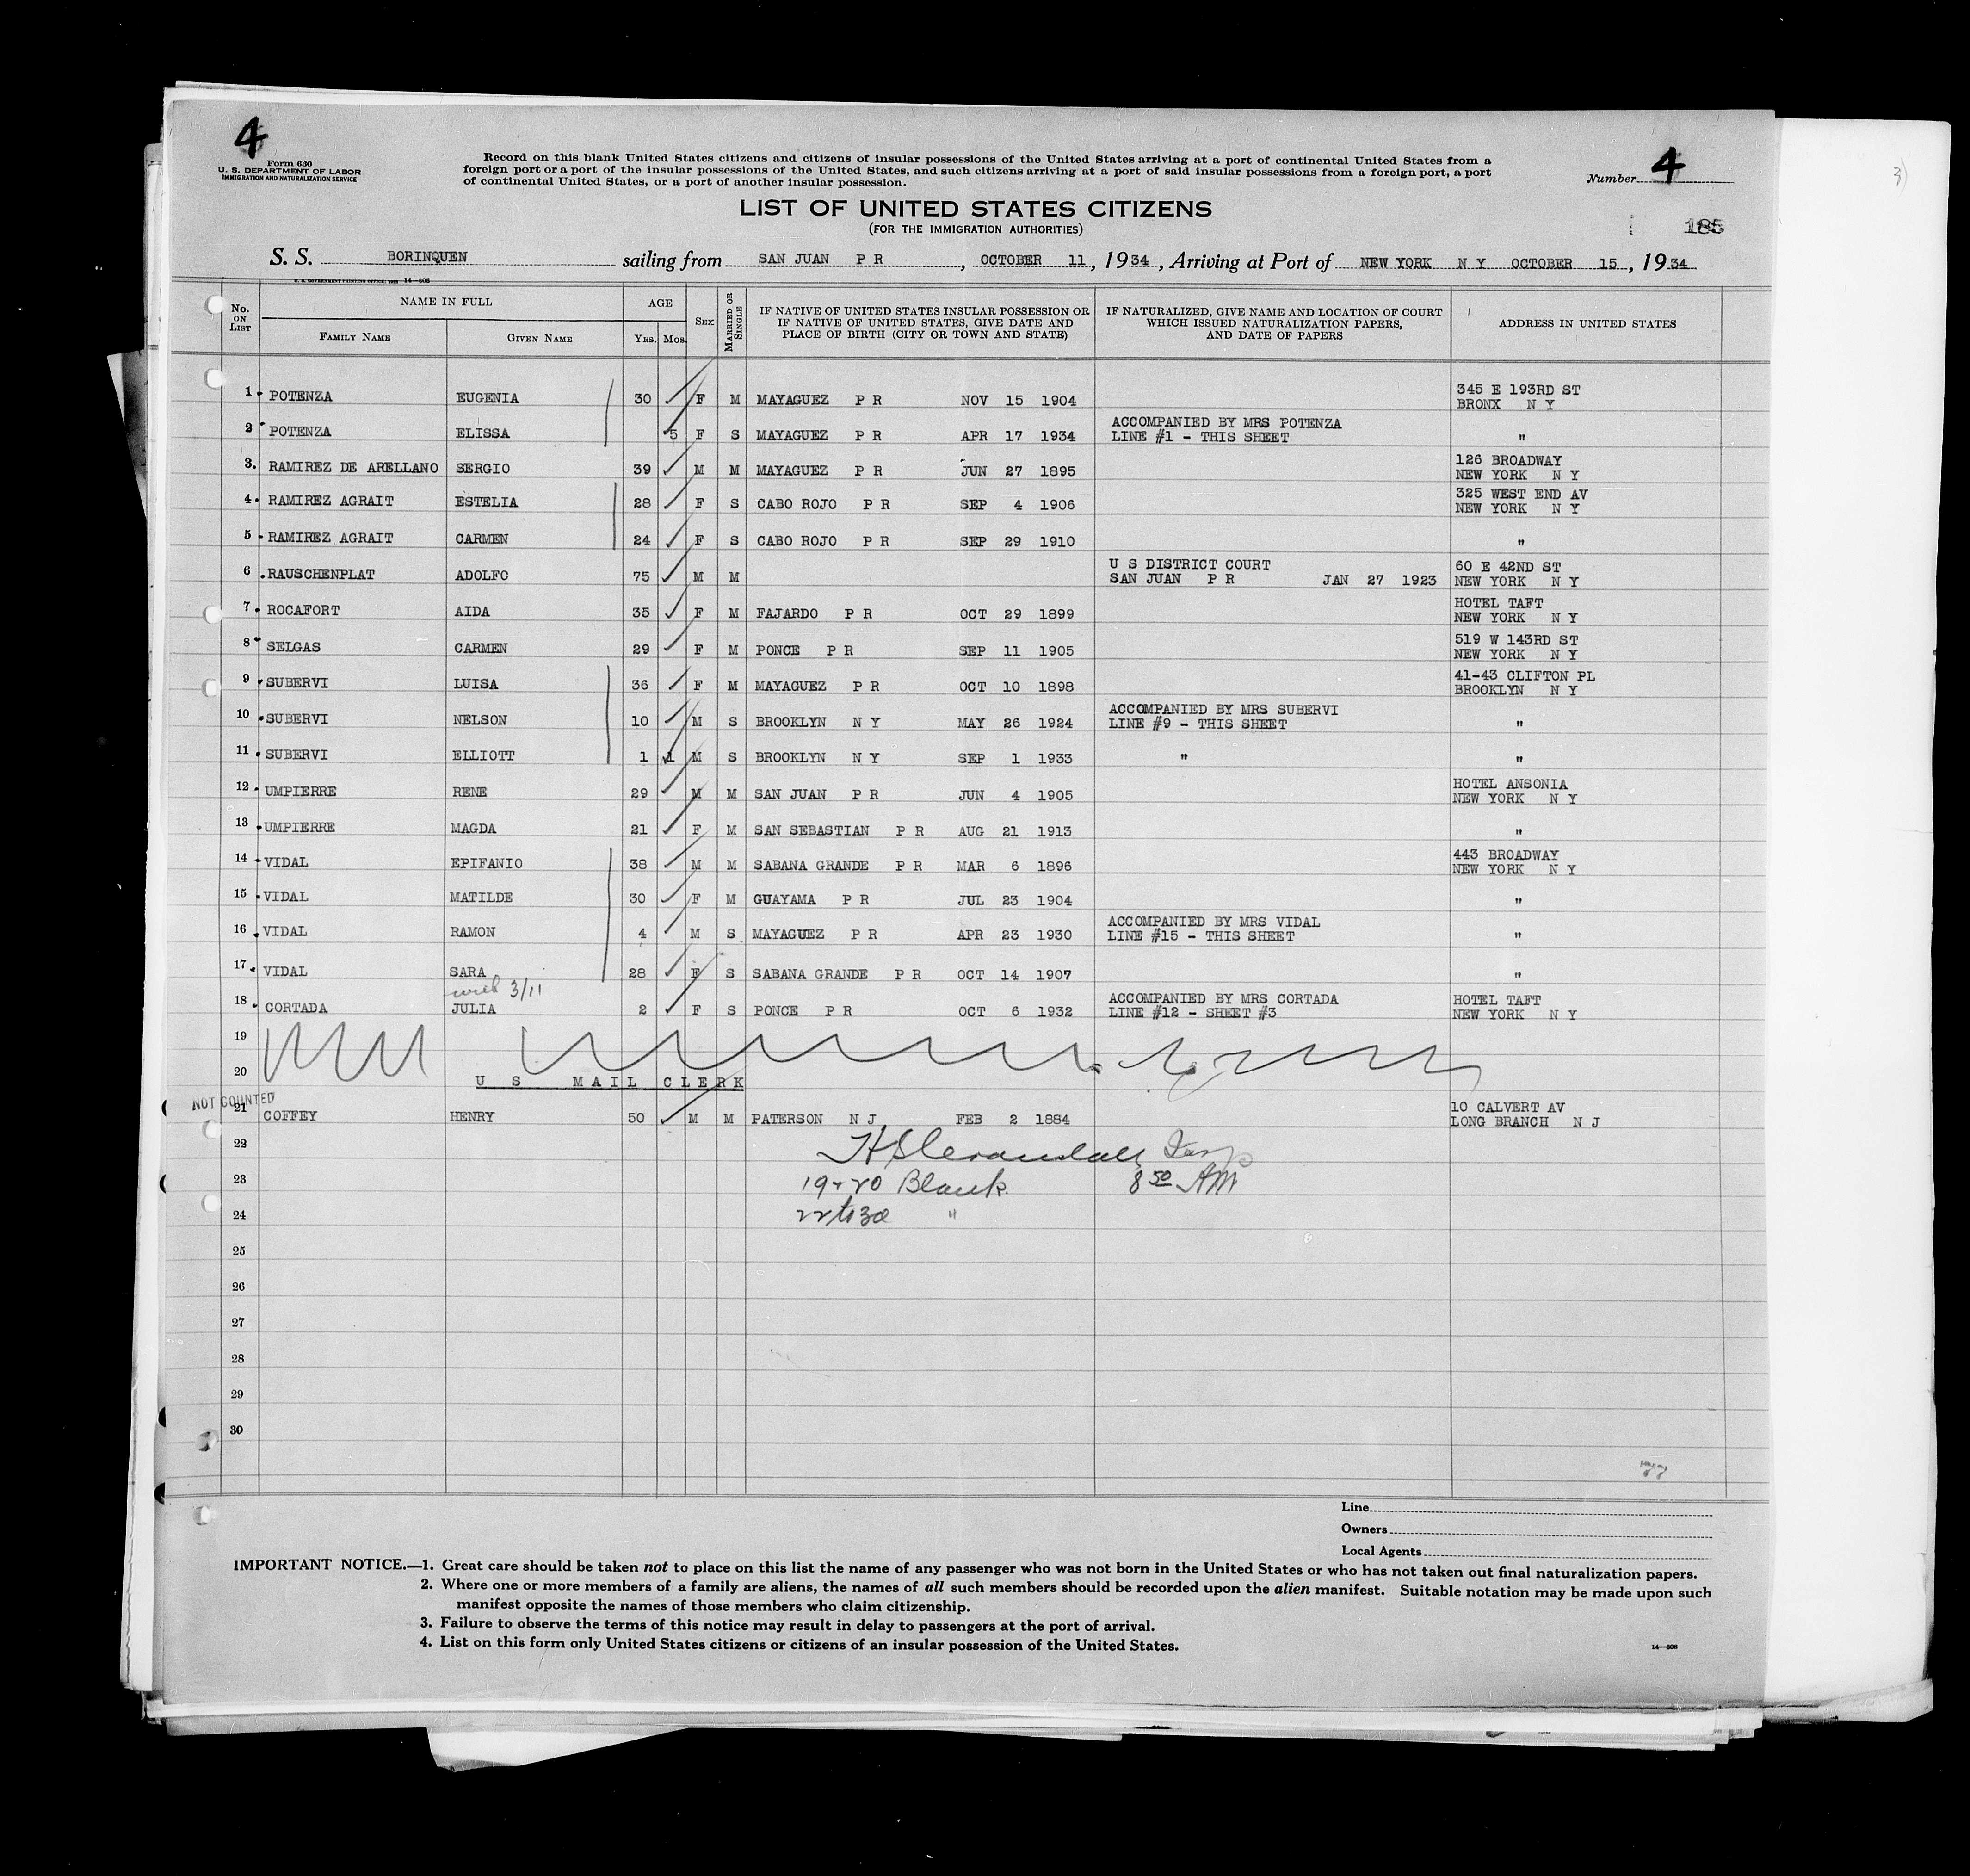 4
Form 630
U. S. DEPARTMENT OF LABOR
IMMIGRATION AND NATURALIZATION SERVICE
Record on this blank United States citizens and citizens of insular possessions of the United States arriving at a port of continental United States from a
foreign port or a port of the insular possessions of the United States, and such citizens arriving at a port of said insular possessions from a foreign port, a port
of continental United States, or a port of another insular possession.
Number 4
3)
LIST OF UNITED STATES CITIZENS
(FOR THE IMMIGRATION AUTHORITIES)
185
S. S. BORINQUEN sailing from SAN JUAN P R, OCTOBER 11, 1934, Arriving at Port of NEW YORK N Y OCTOBER 15, 1934
No. ON LIST NAME IN FULL FAMILY NAME GIVEN NAME AGE YRS. MOS. SEX MARRIED OR SINGLE IF NATIVE OF UNITED STATES INSULAR POSSESSION OR IF NATIVE OF UNITED STATES, GIVE DATE AND PLACE OF BIRTH (CITY OR TOWN AND STATE) IF NATURALIZED, GIVE NAME AND LOCATION OF COURT WHICH ISSUED NATURALIZATION PAPERS, AND DATE OF PAPERS ADDRESS IN UNITED STATES
1 POTENZA EUGENIA 30 F M MAYAGUEZ P R NOV 15 1904 345 E 193RD ST BRONX N Y
2 POTENZA ELISSA 5 F S MAYAGUEZ P R APR 17 1934 ACCOMPANIED BY MRS POTENZA LINE #1 - THIS SHEET "
3. RAMIREZ DE ARELLANO SERGIO 39 M M MAYAGUEZ P R JUN 27 1895 126 BROADWAY NEW YORK N Y
4 RAMIREZ AGRAIT ESTELIA 28 F S CABO ROJO P R SEP 4 1906 325 WEST END AV NEW YORK N Y
5 RAMIREZ AGRAIT CARMEN 24 F S CABO ROJO P R SEP 29 1910 "
6 RAUSCHENPLAT ADOLFO 75 M M U S DISTRICT COURT SAN JUAN P R JAN 27 1923 60 E 42ND ST NEW YORK N Y
7 ROCAFORT AIDA 35 F M FAJARDO P R OCT 29 1899 HOTEL TAFT NEW YORK N Y
8 SELGAS CARMEN 29 F M PONCE P R SEP 11 1905 519 W 143RD ST NEW YORK N Y
9 SUBERVI LUISA 36 F M MAYAGUEZ P R OCT 10 1898 41-43 CLIFTON PL BROOKLYN N Y
10 SUBERVI NELSON 10 M S BROOKLYN N Y MAY 26 1924 ACCOMPANIED BY MRS SUBERVI LINE #9 - THIS SHEET "
11 SUBERVI ELLIOTT 1 1 M S BROOKLYN N Y SEP 1 1933 " "
12 UMPIERRE RENE 29 M M SAN JUAN P R JUN 4 1905 HOTEL ANSONIA NEW YORK N Y
13 UMPIERRE MAGDA 21 F M SAN SEBASTIAN P R AUG 21 1913 "
14 VIDAL EPIFANIO 38 M M SABANA GRANDE P R MAR 6 1896 443 BROADWAY NEW YORK N Y
15 VIDAL MATILDE 30 F M GUAYAMA P R JUL 23 1904 "
16 VIDAL RAMON 4 M S MAYAGUEZ P R APR 23 1930 ACCOMPANIED BY MRS VIDAL LINE #15 - THIS SHEET "
17 VIDAL SARA 28 F S SABANA GRANDE P R OCT 14 1907 "
3/11
18 CORTADA JULIA 2 F S PONCE P R OCT 6 1932 ACCOMPANIED BY MRS CORTADA LINE #12 - SHEET #3 HOTEL TAFT NEW YORK N Y
19
20 U S MAIL CLERK
NOT COUNTED
21 COFFEY HENRY 50 M M PATERSON N J FEB 2 1884 10 CALVERT AV LONG BRANCH N J
22
23 19+20 Blank 8 50 AM
24 22 to 30 "
25
26
27
28
29
30
77
Line
Owners
Local Agents
IMPORTANT NOTICE.—1. Great care should be taken not to place on this list the name of any passenger who was not born in the United States or who has not taken out final naturalization papers.
2. Where one or more members of a family are aliens, the names of all such members should be recorded upon the alien manifest. Suitable notation may be made upon such
manifest opposite the names of those members who claim citizenship.
3. Failure to observe the terms of this notice may result in delay to passengers at the port of arrival.
4. List on this form only United States citizens or citizens of an insular possession of the United States.